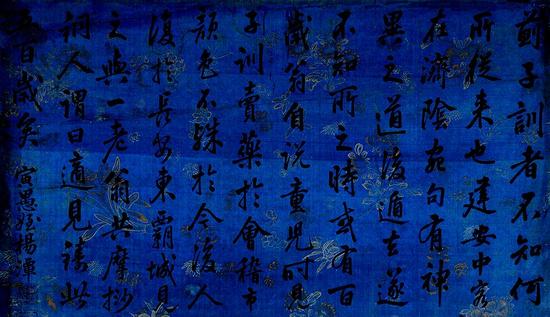 薊子訓者不知何
所從来也建安中客
在濟陰宛句有神
異之道後遁去遂
不知所之時或有百
歲翁自說童兒時見
子訓賣藥於會稽市
顏色不殊於今後人
復於長安東霸城見
之與一老翁共摩挱
銅人謂曰適見鑄此
五百歲矣 愚姪楊